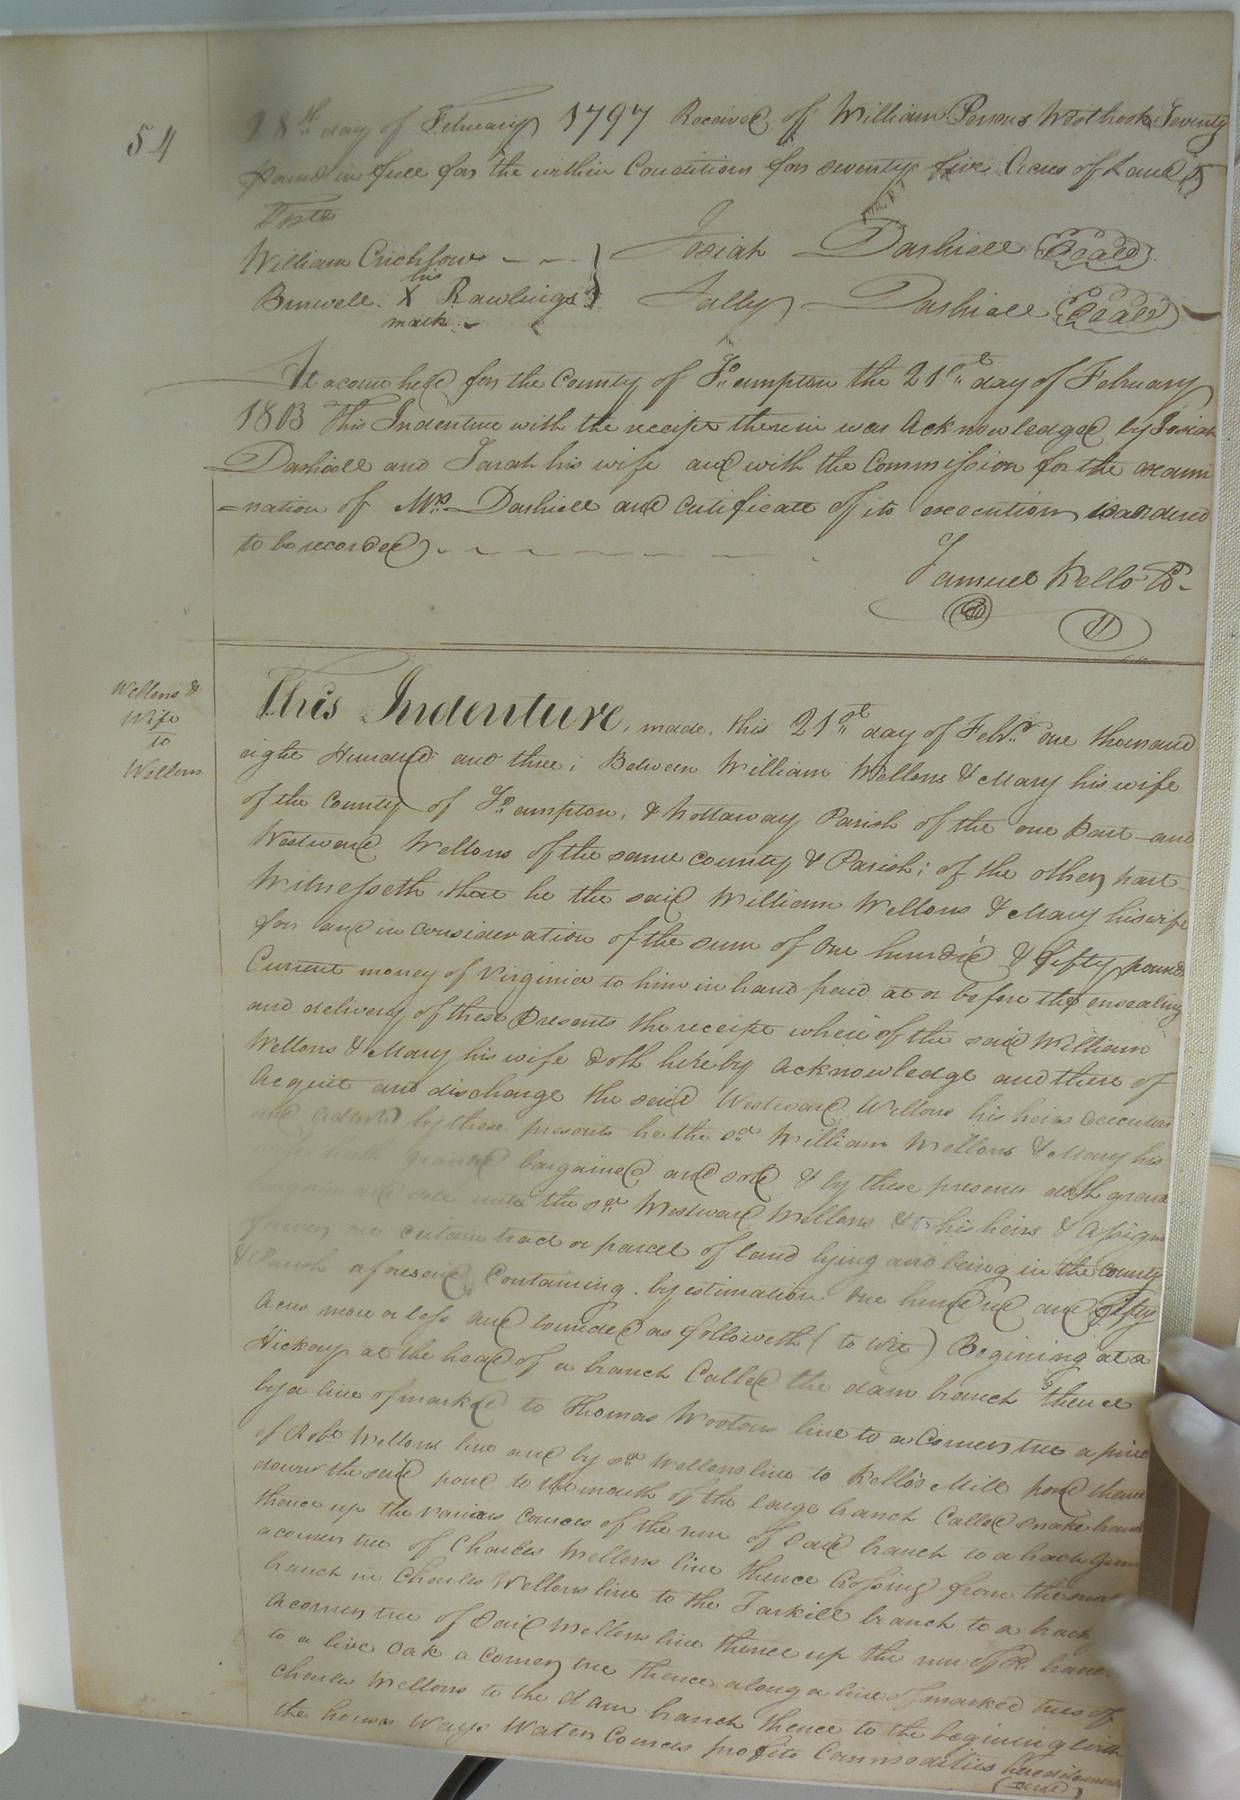 54
18th day of February 1797 Received of William Persons Westbrook Seventy
pound in full for the within Conditions for seventy five Acres of Land
Teste
William Crichlow Josiah Dashiell Seal
his
Burwell X Rawlings Sally Dashiell Seal
mark
At a court held for the County of So.ampton the 21st day of February
1803 This Indenture with the receipt therein was Acknowledged by Josiah
Dashiell and Sarah his wife and with the Commission for the exami
=nation of Mrs Dashiell and Certificate of its execution is ordered
to be recorded
Samuel Kello Cc
Wellons &
Wife
to
Wellons
This Indenture, made, this 21st day of Febry. one thousand
eight Hundred and three; Between William Wellons & Mary his wife
of the County of So.ampton, & Nottaway Parish of the one Part and
Westward Wellons of the same county & Parish; of the other part
Witnesseth, that he the said William Wellons & Mary his wife
for and in consideration of the sum of One hundred & fifty pounds
Current money of Virginia to him in hand paid at or before the ensealing
and delivery of these Presents the receipt where of the said William
Wellons & Mary his wife doth hereby Acknowledge and there of
Acquit and discharge the said Westward Wellons his heirs executors
and by these presents he the sd. William Wellons & Mary his
wife hath granted bargained and sold & by these presents doth grant
and sell unto the sd. Westward Wellons & to his heirs & Assigns
forever one certain tract or parcel of land lying and being in the County
& Parish aforesaid, Containing by estimation One hundred and fifty
Acres more or less and bounded as followeth (to Wit) Begining at a
Hickory at the head of a branch Called the dam branch thence
by a line of marked to Thomas Wootons line to a Corner tree a pine
of Robt. Wellons line and by sd. Wellons line to Kello's Mill pond thence
down the said pond to the mouth of the large branch Called Snake branch
thence up the various Cources of the run of said branch to a black Gum
a corner tree of Charles Wellons line thence Crossing from the
branch in Charles Wellons line to the Tarkill branch to a
A corner tree of Said Wellons line thence up the run of sd. branch
to a live Oak a Corner tree thence along a line of marked trees of
Charles Wellons to the dam branch thence to the begining with
the houses Ways Waters Cources profits Commodities hereditaments
(and)